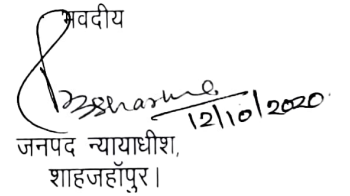 भवदीय
12/10/2020
जनपद न्यायाधीश,
शाहजहॉपुर।